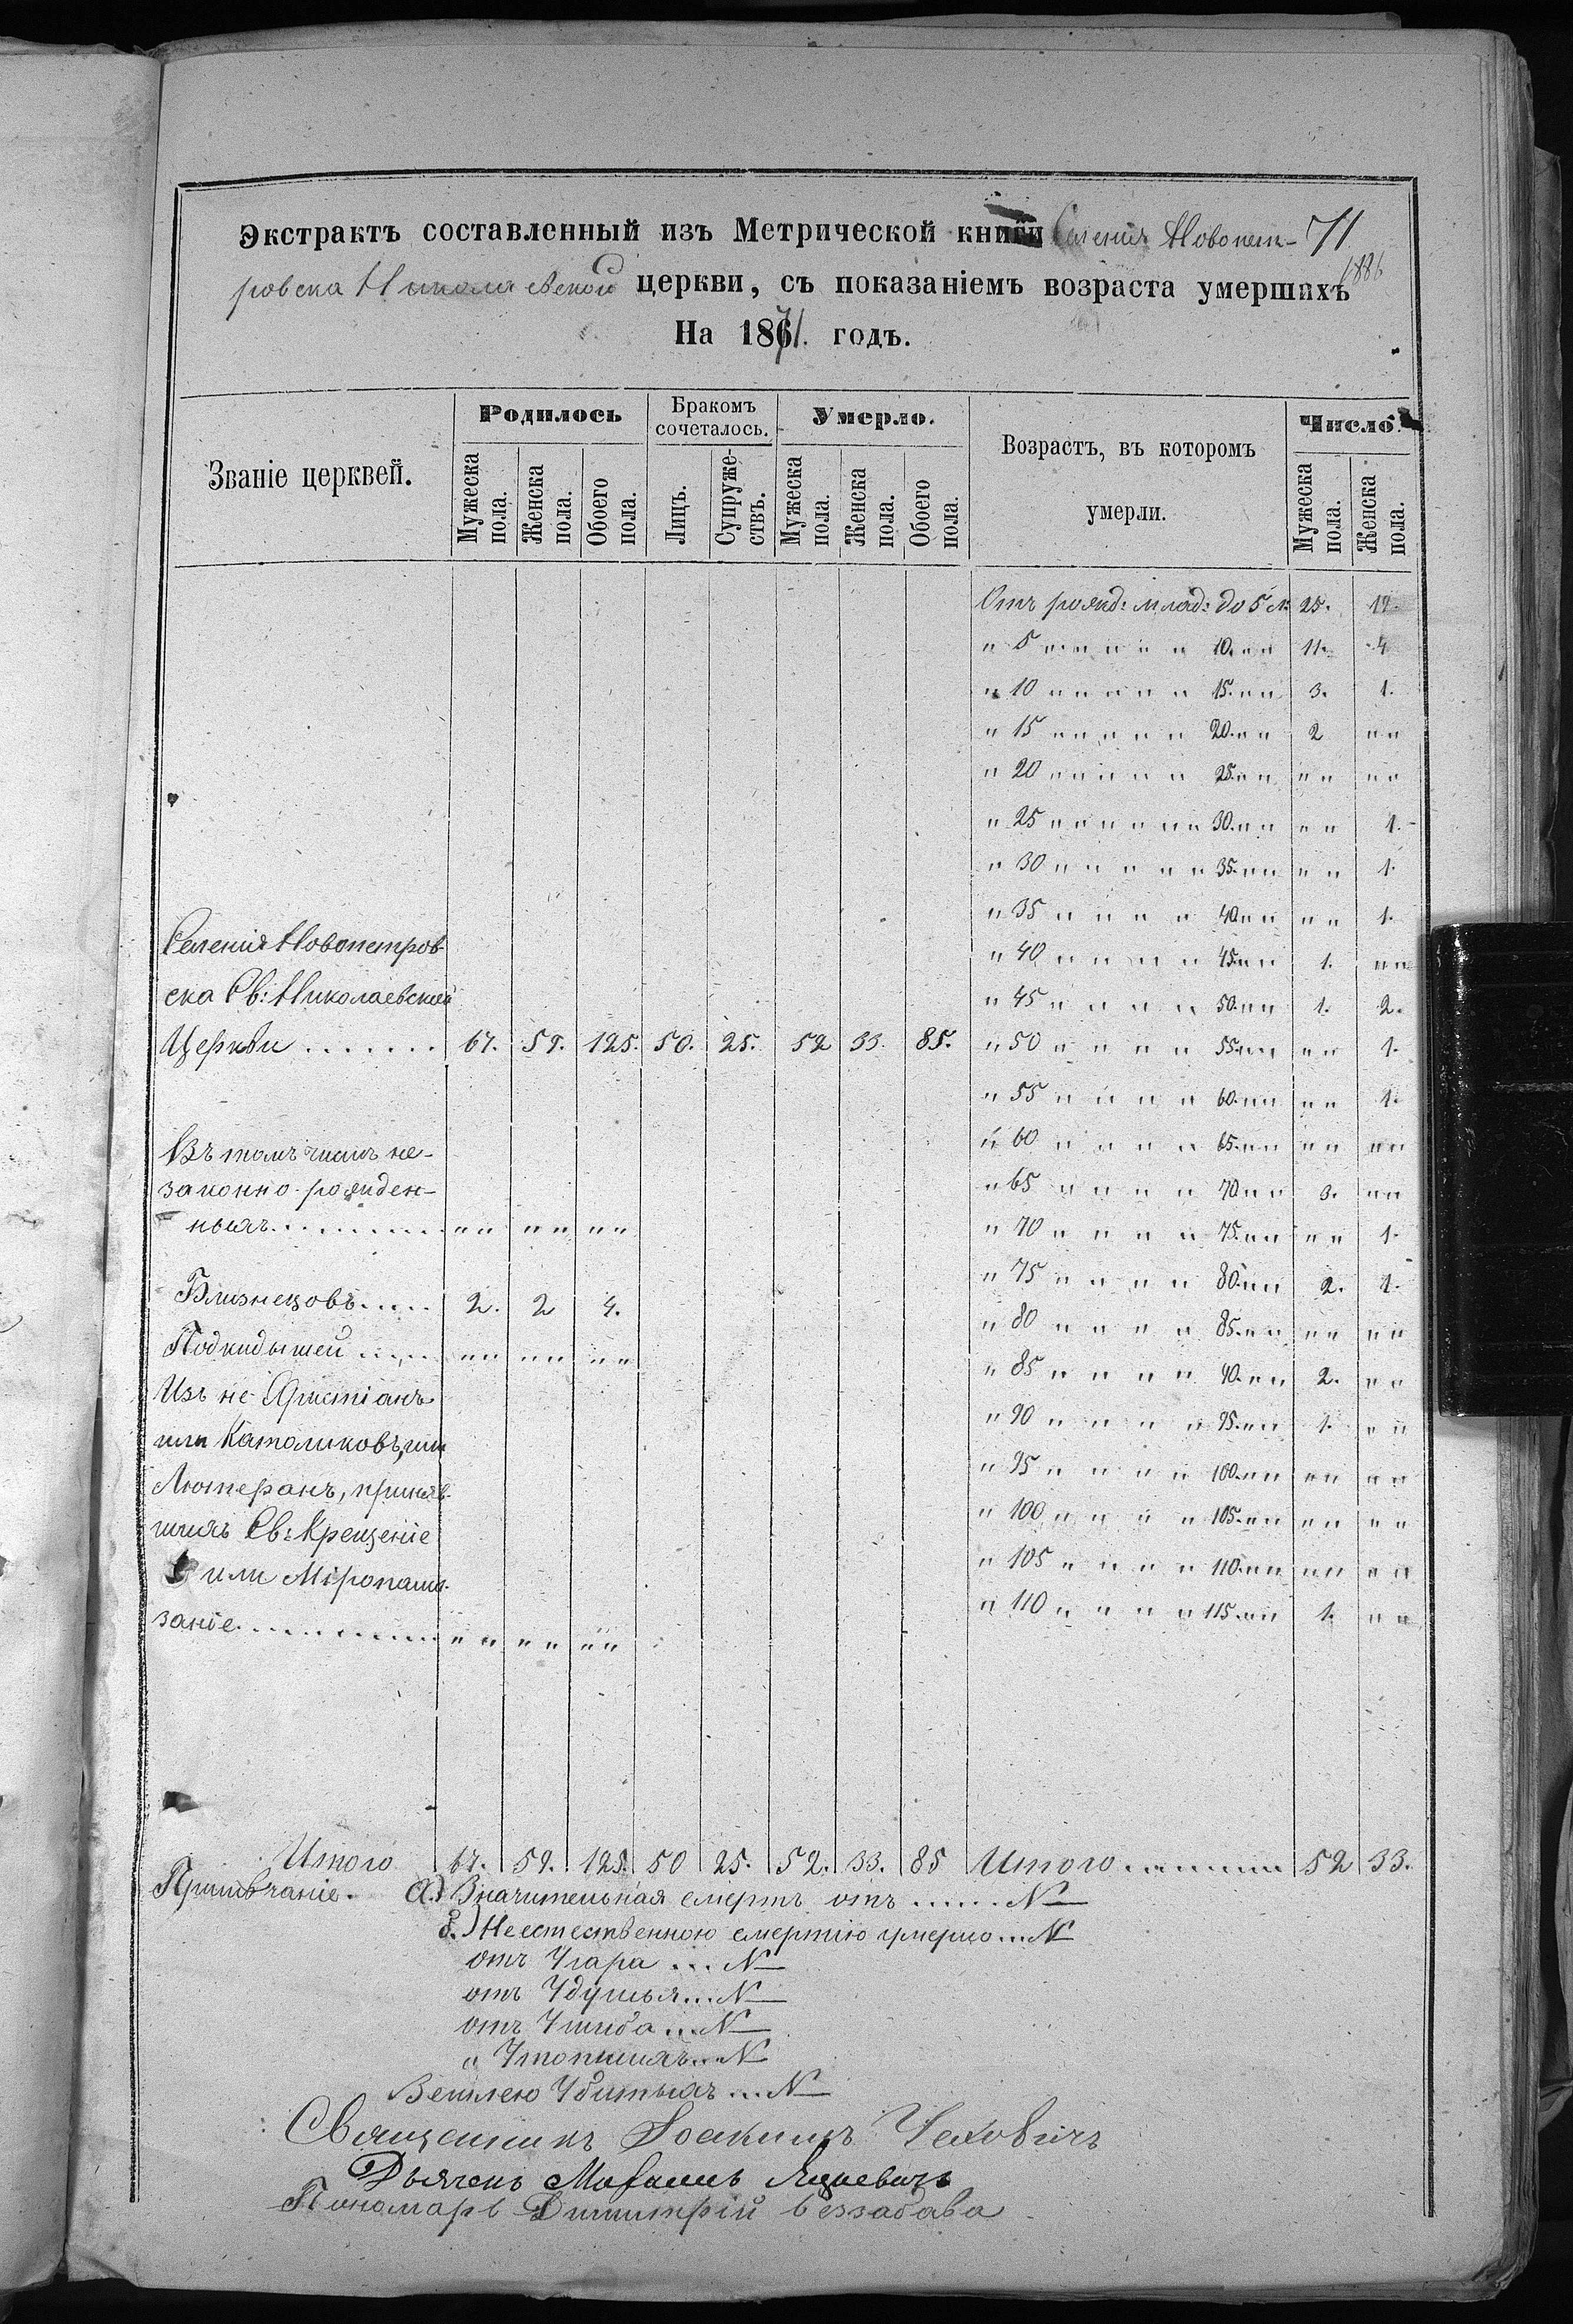 Экстрактъ составленный изъ Метрической книги Селенія Новопет- 71
ровска Николаевской церкви, съ показаніемъ возраста умершихъ
На 1871. годъ.
Званіе церквей.
Родилось
Бракомъ сочеталось.
Умерло.
Возрастъ, въ которомъ умерли.
Число
Мужеска пола.
Женска пола.
Обоего пола.
Лицъ.
Супружествъ.
Мужеска пола.
Женска пола.
Обоего пола.
Мужеска пола.
Женска пола.
Отъ рожд: млад: до 5 л: 25. 19.
" 5 " " " " " 10. " " 11. 4
" 10 " " " " " 15. " " 3. 1.
" 15 " " " " " 20. " " 2 " "
" 20 " " " " " 25. " " " " " "
" 25 " " " " " " 30. " " " " 1.
" 30 " " " " " 35. " " " " 1.
" 35 " " " " 40 " " " " 1.
" 40 " " " " 45 " " 1. " "
" 45 " " " " 50. " " 1. 2.
" 50 " " " " 55 " " " " 1.
" 55 " " " " 60. " " " " 1.
" 60 " " " " 65. " " " " " "
" 65 " " " " 70 " " 3. " "
" 70 " " " " 75. " " " " 1.
" 75 " " " " 80. " " 2. 1.
" 80 " " " " 85. " " " " " "
" 85 " " " " 90. " " 2. " "
" 90 " " " " 95. " " 1. " "
" 95 " " " " 100. " " " " " "
" 100 " " " " 105. " " " " " "
" 105 " " " " 110. " " " " " "
" 110 " " " " 115. " " 1. " "
Селенія Новопетров-
ска Св: Николаевской
Церкви . . . . . . . 67. 59. 125. 50. 25. 52 33. 85.
Въ томъ числѣ не-
законно-рожден-
ныхъ. . . . . . . . . " " " " " "
Близнецовъ. . . . . 2. 2 4.
Подкидышей . . . . " " " " " "
Изъ не Христіанъ
или Католиковъ, или
Лютеранъ, приняв-
шихъ Св: Крещеніе
или Міропама-
заніе. . . . . . . . . . " " " " " "
Итого 67. 59. 125. 50 25. 52. 33. 85 Итого . . . . . . 52 33.
Примѣчаніе. а.) Значительная смерть отъ . . . . . . N
б.) Неестественною смертію умерло . . . N
отъ Угара . . . N
отъ Удушья . . . N
отъ Ушиба . . . N
" Утопшихъ . . . N
Землею Убитыхъ . . . N
Священникъ Іоакимъ Чехович
Дьячекъ
Пономарь Димитрій Беззабава